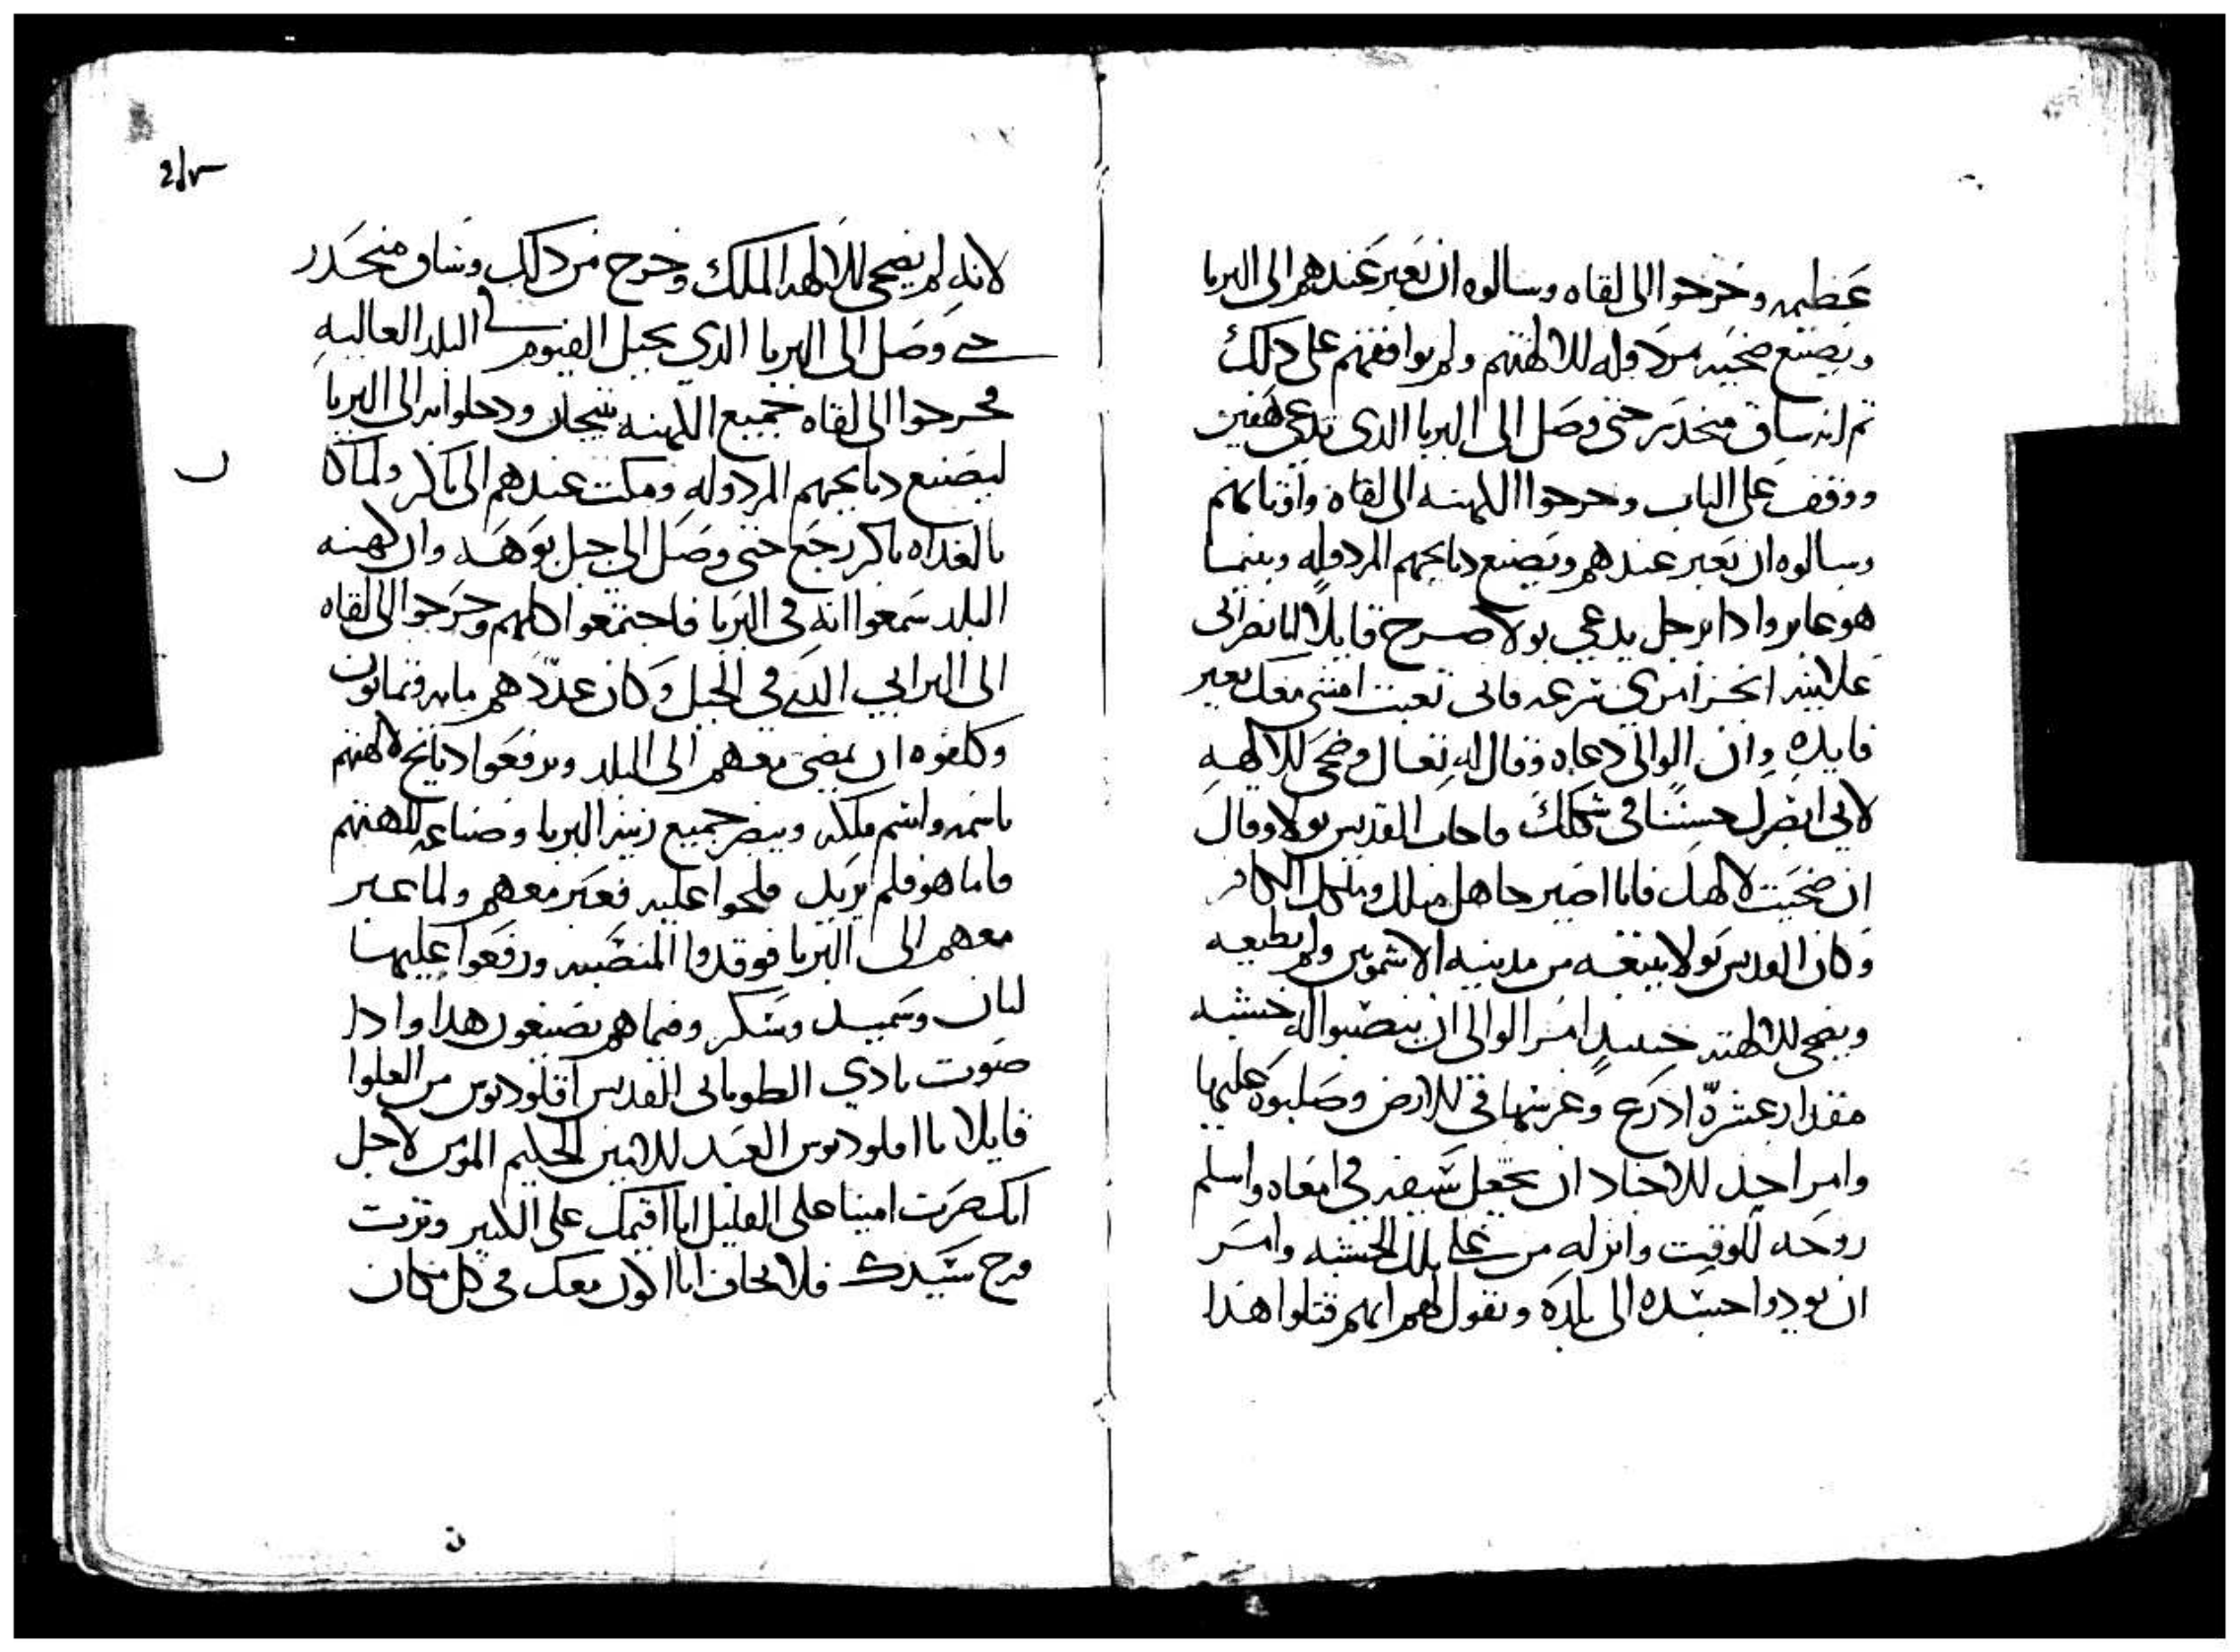 عظيمه وخرجوا الى لقاه وسالوه ان تعبر عندهم الى البربا
ويصنع ضحيه مردوله للالهتهم ولم يوافقهم على دلك
تم انه ساق منحدر حتى وصل الى البربا الدى تدعى
ووقف على الباب وخرجوا الكهنه الى لقاه
وسالوه ان تعبر عندهم ويصنع دبايحهم المردوله وبينما
هو عابر وادا برجل يدعى بولا صرح قايلا انا نصرانى
علانيه معك بغير
فايده وان الوالى دعاه وقال له تعال وضحى للالهه
لانى حسنا فى شكلك فاجاب القديس بولا وقال
ان ضحيت لالهك فانا اصير جاهل متلك وملكك الكافر
وكان القديس بولا من مدينه الاشمونين ولم يطيعه
ويضحى للالهته حينيد امر الوالى ان ينصبوا له خشبه
مقدار عشرة ادرع وغرسها فى الارض وصلبوه عليها
وامر احد الاجناد ان يجعل سيفه فى امعاه واسلم
روحه للوقت وانزله من على تلك الخشبه وامر
ان يودوا جسده الى بلده ونقول لهم انهم قتلوا هدا
لانه لم يضحى للالهه الملك وخرج من دلك وساق منحدر
حتى وصل الى البربا الدي بجبل الفيوم البلد العاليه
فخرجوا الى لقاه جميع الكهنه بتيجان ودخلوا به الى البربا
ليصنع دبايحهم المردوله ومكت عندهم الى باكر ولما كا
بالغداه باكر رجع حتى وصل الى جبل بوهه وان كهنه
البلد سمعوا انه فى البربا فاجتمعوا كلهم وخرجوا الى لقاه
الى البرابى التى فى الجبل وكان عددهم مايه وتمانون
وكلفوه ان يمضى معهم الى البلد ويرفعوا دبايح لالهتهم
باسمه واسم ملكه ويبصر جميع زينه البربا وصناعه الهتهم
فاما هو فلم يريد فلحوا عليه فعبر معهم ولما عبر
معهم الى البربا فوقدوا المنصبه ورفعوا عليها
لبان وسميد وسكر وفيما هم يصنعون هدا وادا
صوت نادي الطوبانى القديس اقلوديوس من العلوا
قايلا يا اقلوديوس العبد الامين الحكيم المومن لاجل
انك صرت امينا على القليل انا اقيمك على الكتير وترت
فرح سيدك فلا تخاف انا اكون معك فى كل مكان